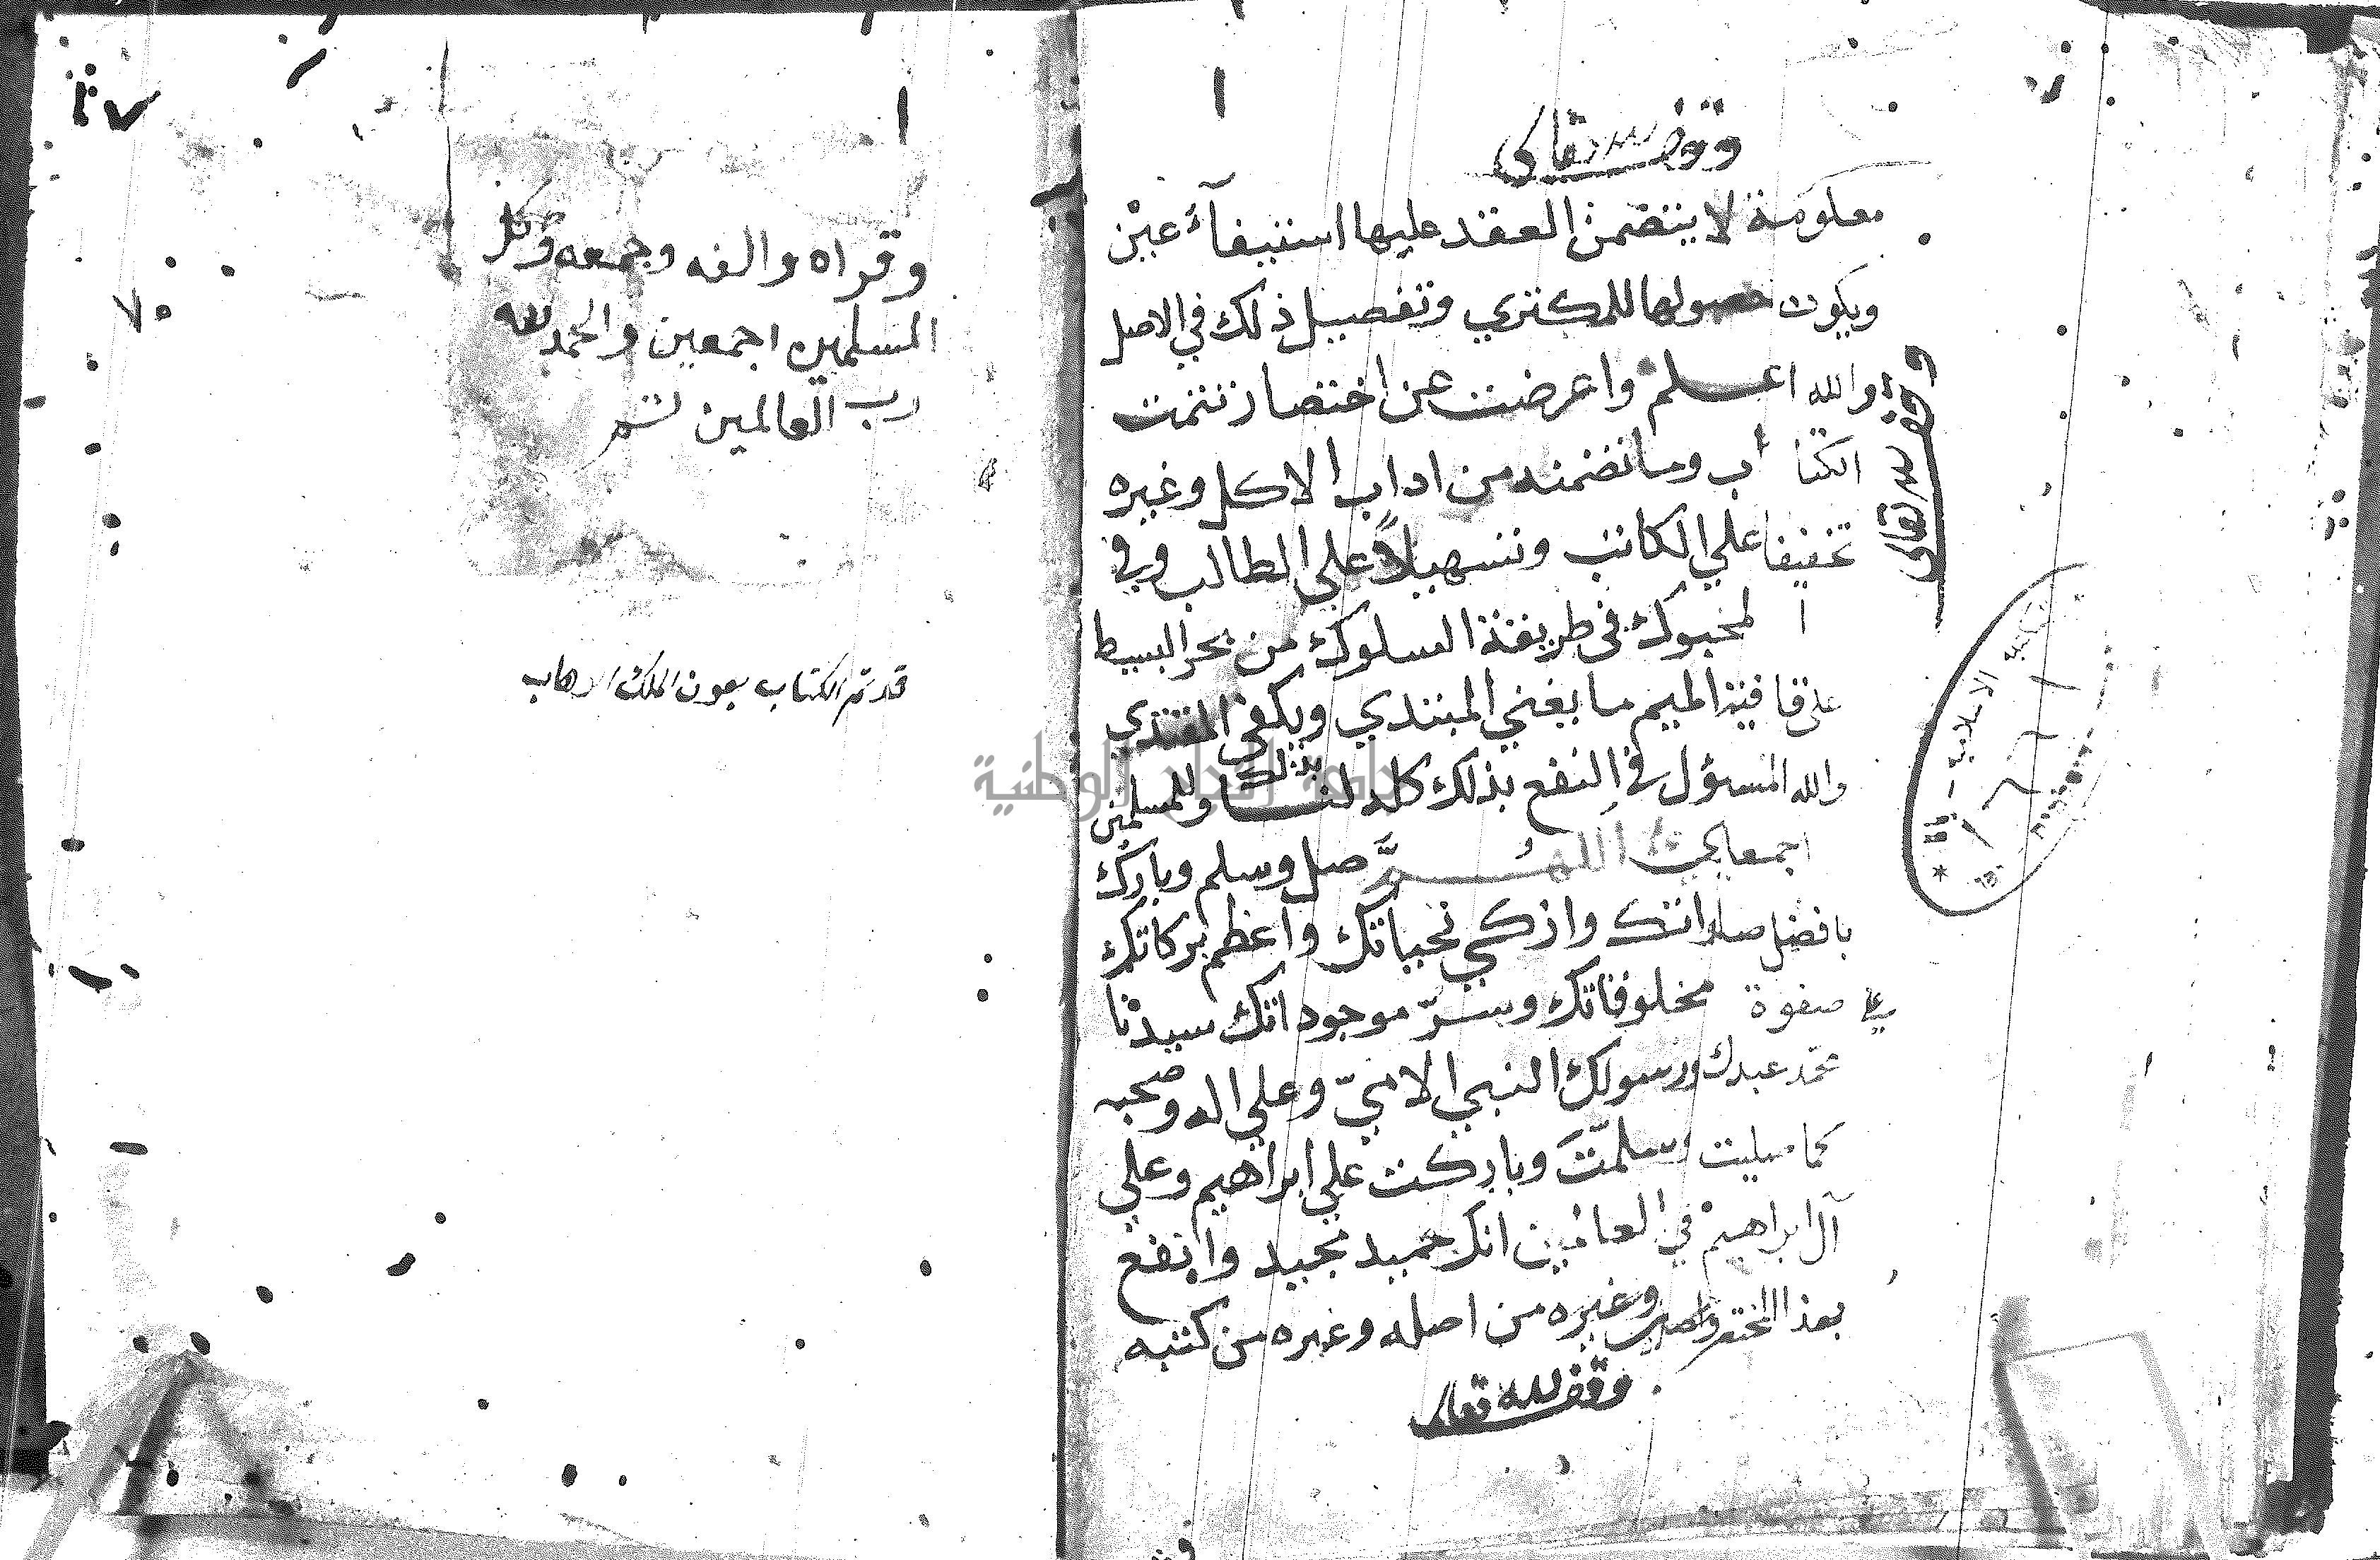 وقف لله تعالى
معلومة لا يتضمن العقد عليها استيفآء عين
ويكون حصولها للمكتري وتفصيل ذلك في الاصل
والله اعلم واعرضت عن اختصار تتمت
الكتاب وما تضمنه من اداب الاكل وغيره
تخفيفا علي الكاتب وتسهيلاً علي الطالب وفي
المحبوك في طريقة السلوك من بحر البسيط
على قافية الميم ما يغني المبتدي ويكفي المقتدي
والله المسؤل في النفع بذلك كله لنا وللمسلمين
اجمعين اللهم صل وسلم وبارك
بافضل صلواتك وازكي تحياتك واعظم بركاتك
على صفوة مخلوقاتك وسرّ موجوداتك سيدنا
محمد عبدك ورسولك النبي الاميّ وعلي اله وصحبه
كما صليت وسلمت وباركت علي ابراهيم وعلي
آل ابراهيم في العالمين انك حميد مجيد وانفع
بهذا المختصر واصله وغيره من اصله وغيره من كتبه
وقف لله تعالى
وقف لله تعالى
وقراه والفه وجمعه وكل
المسلمين اجمعين والحمد لله
رب العالمين تم
قد تم الكتاب بعون الملك الوهاب
٧٥
جامعة النجاح الوطنية